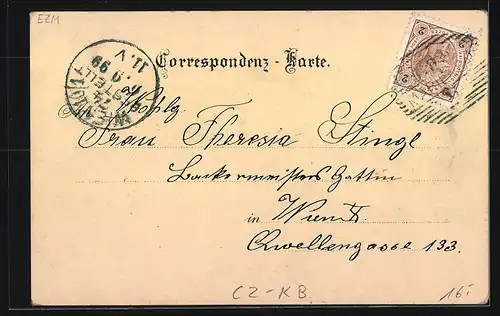 EZM
Correspondenz - Karte.
WIEN
BESTELLT
11.V
2
2
Frau Theresia Stingl
Backermeisters Gattin
in Wien X.
Quellengasse 133.
CZ-KB
16,-